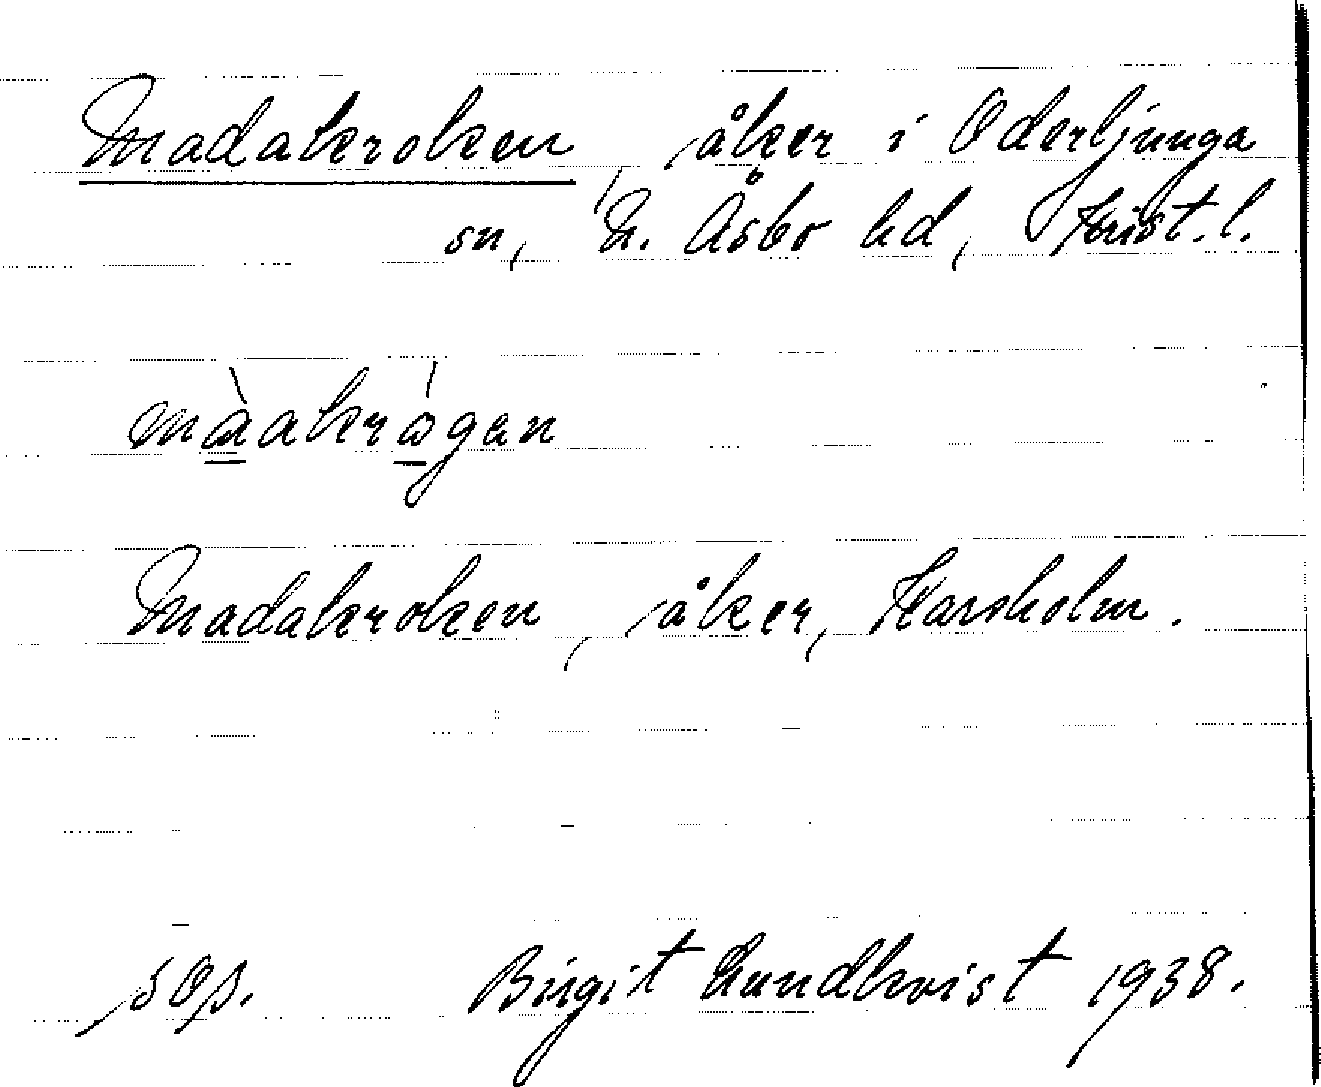 Madakroken, åker i Oderljunga
sn, N. Åsbo hd, Krist. l.
màakrǻgan
Madakroken, åker, Karsholm.
sop. Birgit Lundkvist 1938.